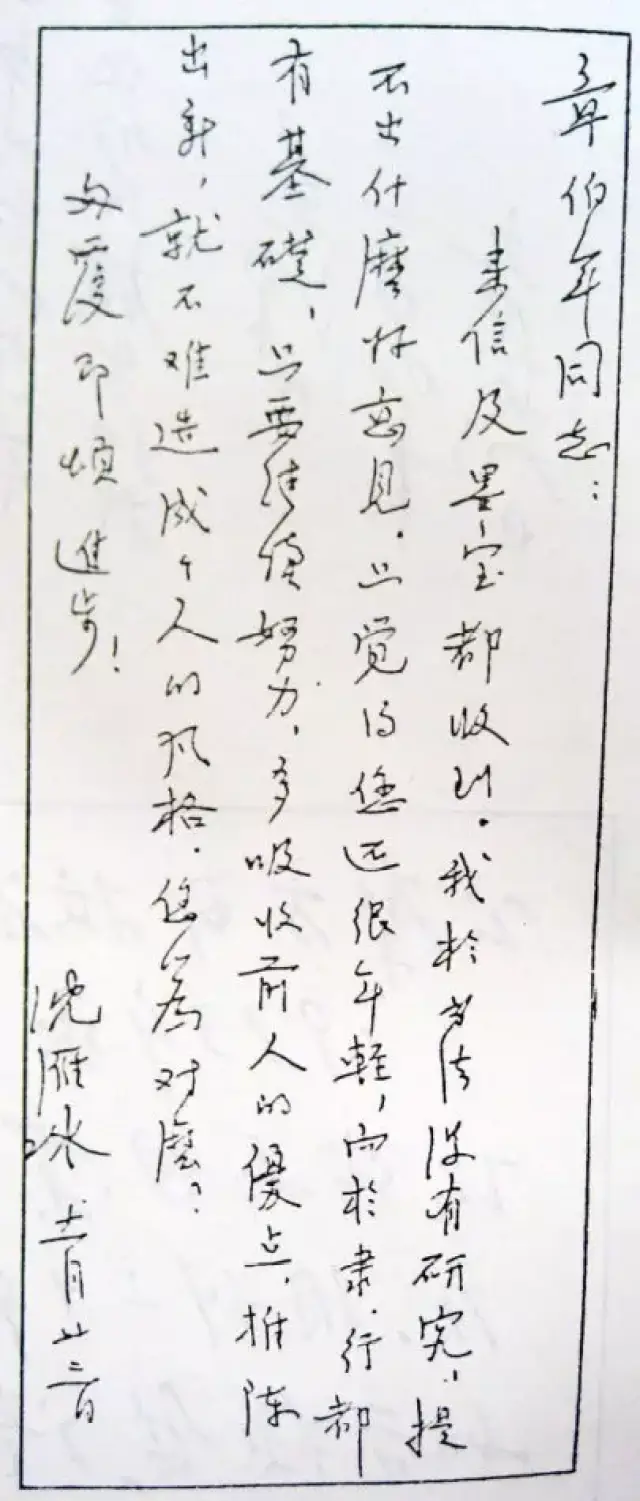 章伯年同志：
来信及墨宝都收到。我於书法没有研究，提
不出什麼好意见。只觉得您还很年轻，而於隶、行都
有基礎，只要继续努力，多吸收前人的優点，推陈
出新，就不难造成个人的风格。您以为对麼？
匆覆即颂進步！
沈雁冰 十一月廿二日